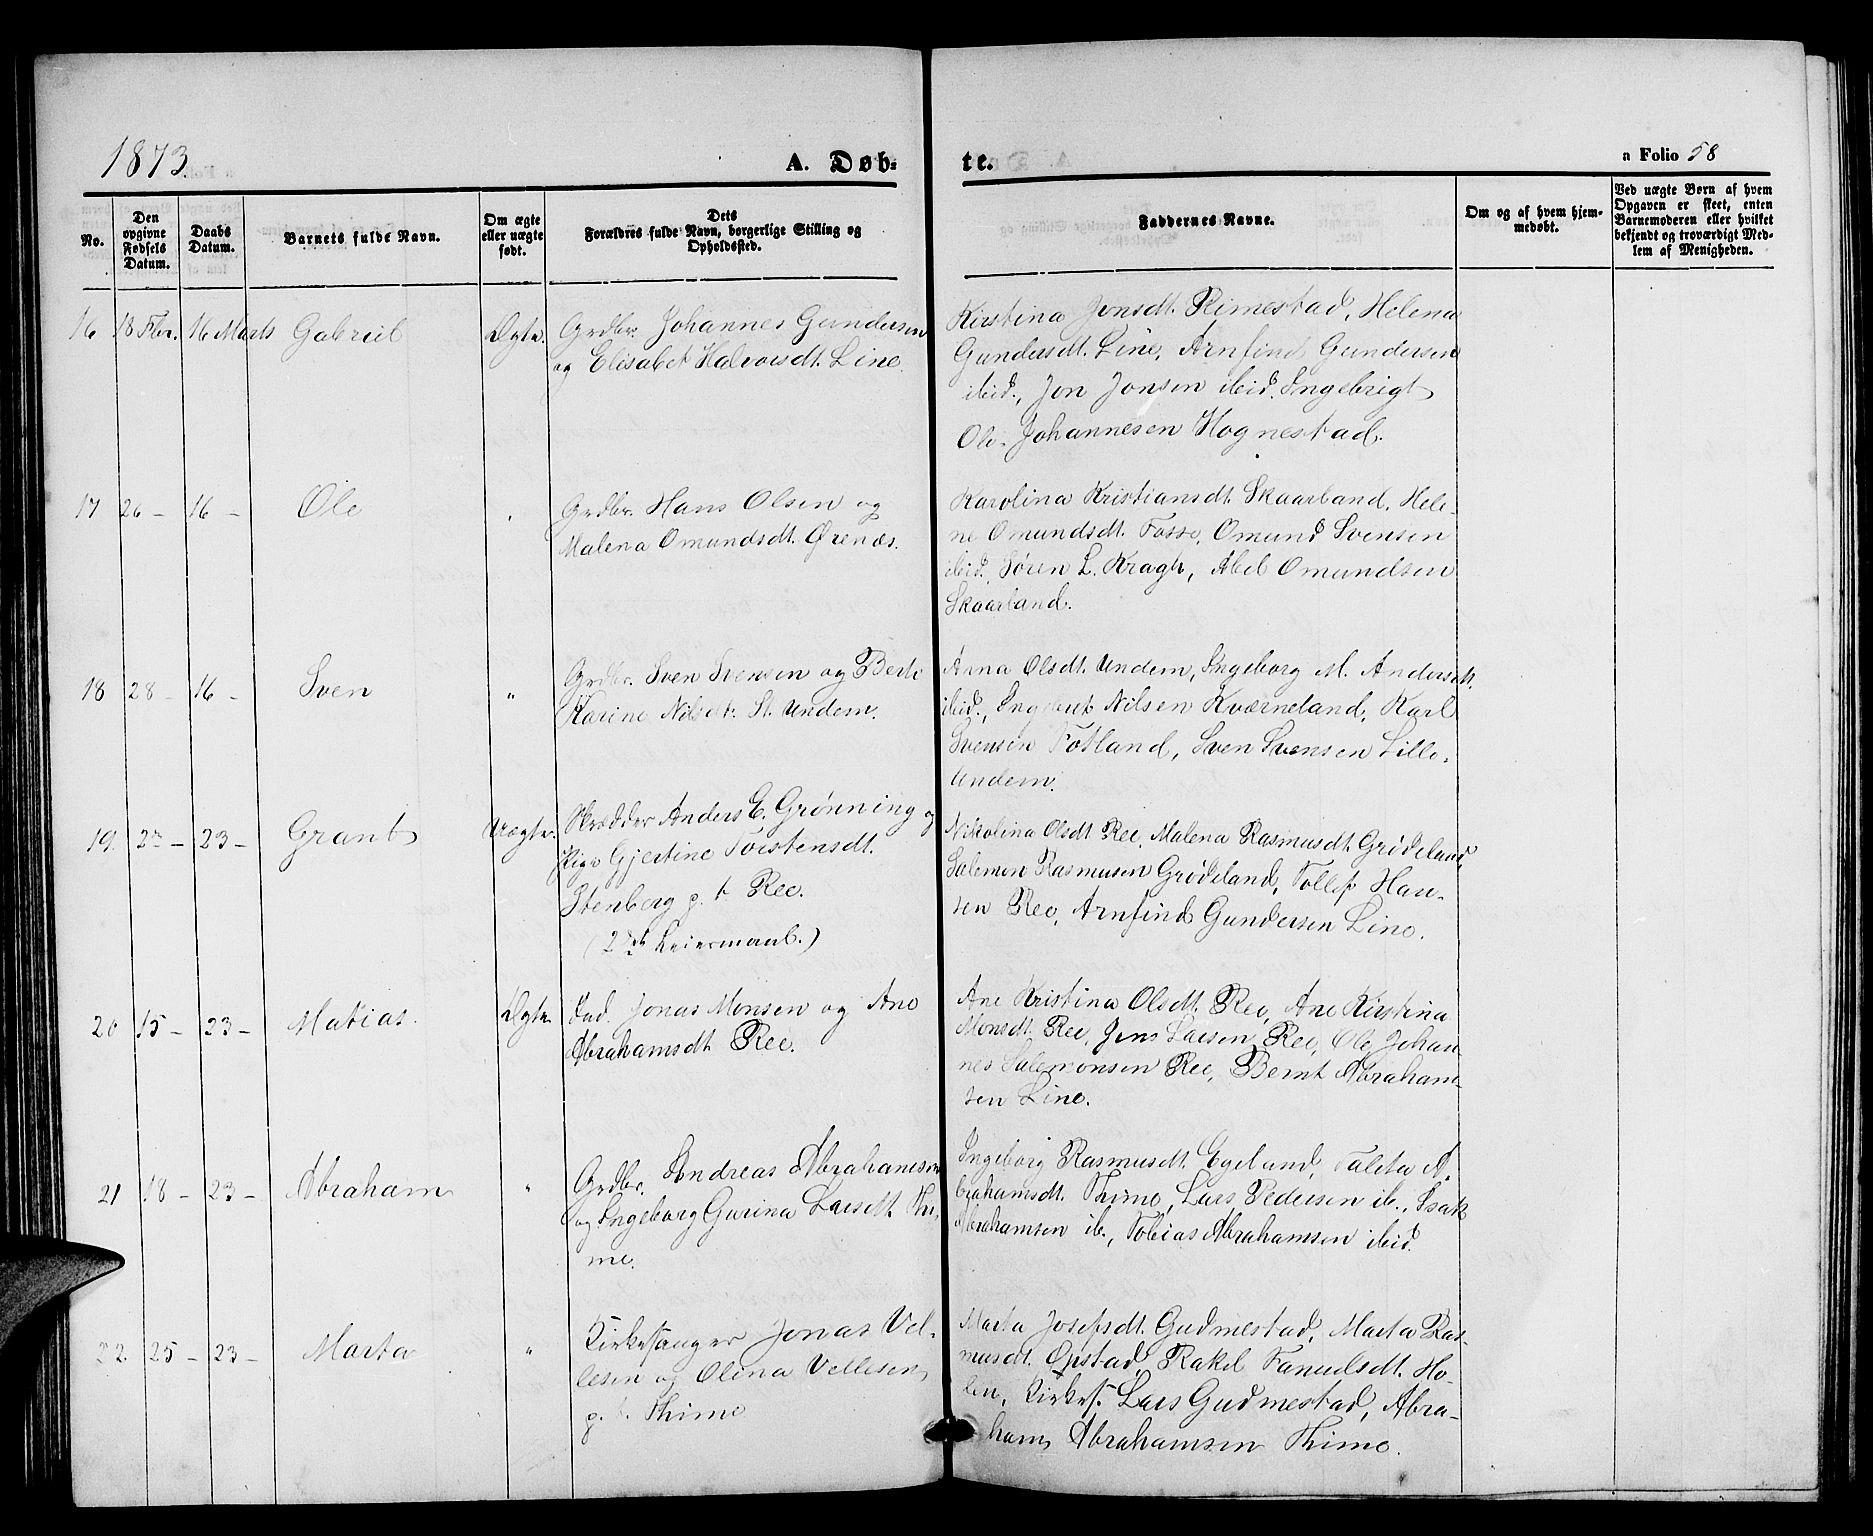 1873.
A. Døb-
te.
a Folio 58
No.
Den
opgivne
Fødsels
Datum.
Daabs
Datum.
Barnets fulde Navn.
Om ægte
eller uægte
født.
Dets
Forældres fulde Navn, borgerlige Stilling og
Opholdssted.
Faddernes Navne.
Om og af hvem hjem-
medøbt.
Ved uægte Børn af hvem
Opgaven er skeet, enten
Barnemoderen eller hvilket
bekjendt og troværdigt Med-
lem af Menigheden.
16 18 Fbr. 16 Marts Gabriel Ægte.
Grdbr. Johannes Gundersen
og Elisabet Halvorsdt. Line.
Kirstina Jonsdt. Rimestad, Helena
Gundersdt. Line, Arnfind Gundersen
ibid., Jon Jonsen ibid. Ingebrigt
Ole Johannesen Hognestad.
17 26 - 16 - Ole
Grdbr. Hans Olsen og
Malena Omundsdt. Ørenæs.
Karolina Kristiansdt. Skaarland, Hele-
ne Omundsdt. Fosse, Omund Svensen
ibid. Søren L. Kragh, Abel Omundsen
Skaarland.
18 28 - 16 - Sven "
Grdbr. Sven Svensen og Berte
Karine Nilsdt. St. Undem.
Anna Olsdt. Undem, Ingeborg M. Andersdt.
ibid., Nilsen Kværneland, Karl
Svensen Fotland, Sven Svensen Lille-
Undem.
19. 27 - 23 - Grant Uægte.
Skrædder Anders E. Grønning og
Pige Gjertine Torstensdt.
Stenberg g. t Ree.
(2det Leiermaal.)
Nikolina Olsdt. Ree, Malena Rasmusdt. Grødeland,
Salemon Rasmusen Grødeland, Tollef Han-
sen Ree, Arnfind Gundersen Line.
20 15 - 23 - Matias. Ægte.
Ind. Jonas Monsen og Ane
Abrahamsdt. Ree.
Ane Kristina Olsdt. Ree, Ane Kirstina
Monsdt. Ree, Jens Larsen Ree, Ole Johan-
nes Salemonsen Ree, Bernt Abraham-
sen Line.
21 18 - 23 - Abraham "
Grdbr. Andreas Abrahamsen
og Ingeborg Gurina Larsdt. Thi-
me.
Ingeborg Rasmusdt. Egeland, Taleta A-
brahamsdt. Thime, Lars Pedersen ib., Isak
Abrahamsen ib., Tobias Abrahamsen ibid.
22 25 - 23 - Marta "
Kirkesanger Jonas Vel-
lesen og Olina Vellesen
g. t. Thime
Marta Josefsdt. Gudmestad, Marta Ras-
musdt. Opstad, Rakel Tanulsdt. Ho-
len, Kirkes. Lars Gudmestad, Abra-
ham Abrahamsen Thime.